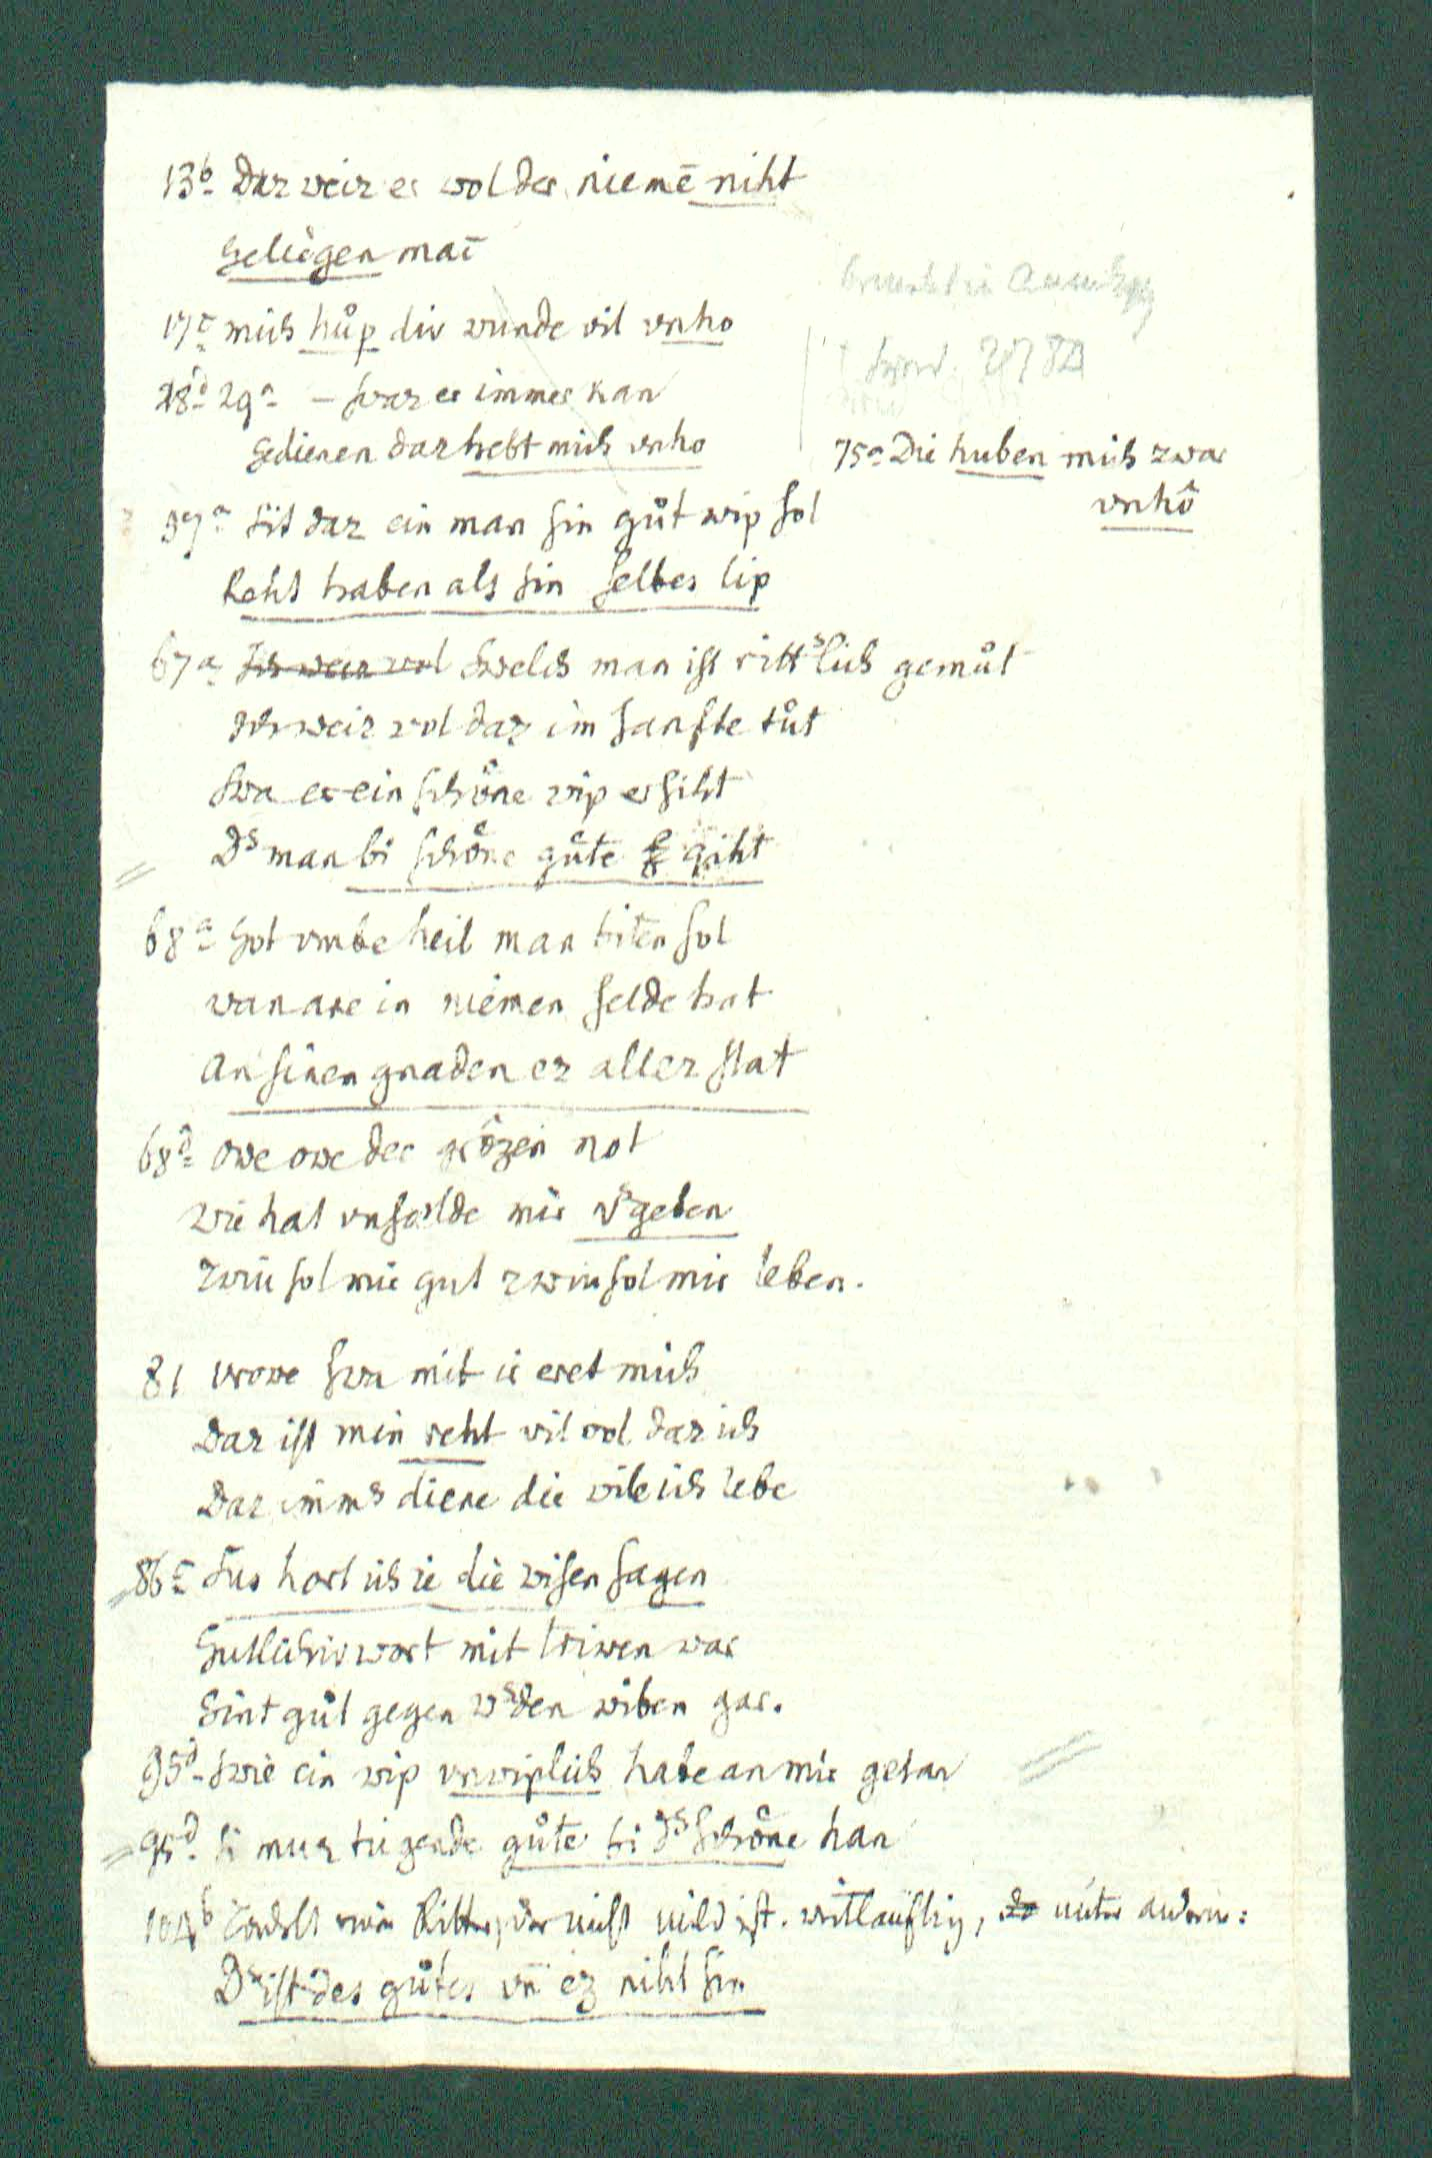 13b Daz weiz er wol der niemē niht
geliegen mac
17c mich huͦp div wunde vil vnho
28d 29a – Swaz er immer kan
gedienen daz hebt mich vnho
75a Die huben mich zwar
vnhô
39a Sit daz ein man sin guͦt wip sol
Reht haben als sin selbes lip
67a Ich weiz wol Swelch man ist rittslich gemuͦt
Ich weiz wol daz im sanfte tuͦt
Swa er ein schoͤne wip ersiht
Ds man bi schoͤne guͤte giht
68a Got vmbe heil man biten sol
wan ane in niemen selde hat
An sinen gnaden ez allez stat
68d owe owe der grôzen not
wie hat vnselde mir vsgeben
zwiu sol mir gut zwiu sol mir leben.
81 vrowe swa mit ir eret mich
Daz ist min reht vil wol daz ich
Daz imms diene die wile ich lebe
86c Sus hort ich ie die wisen sagen
Gutlichiv wort mit triwen war
Sint guͦt gegen wsden wiben gar.
95d Swie ein wip vnwiplich habe an mir getan
95d si muz tugende guͤte bi ds schoͤne han
104b Tadelt einen Ritter, der nicht mild ist. weitläuftig, unter andern:
Ds ist des guͦtes vñ ez niht sin